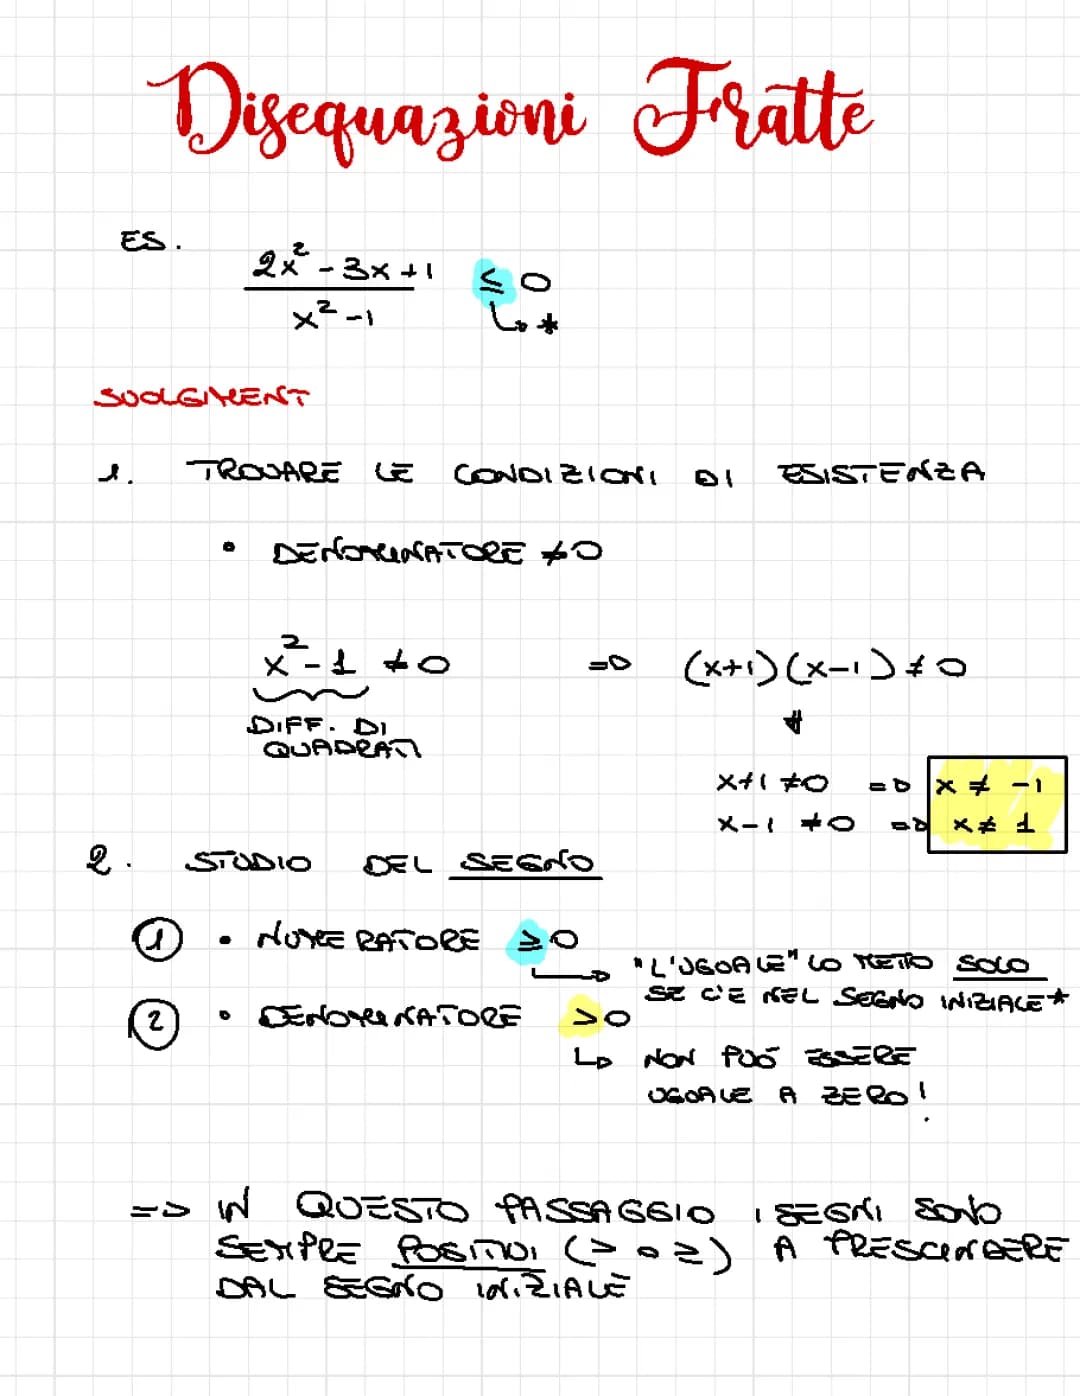 Disequazioni Fratte
ES.
2x² - 3x + 1 ≤ 0
x² - 1 ↳ *
SVOLGIMENT
1. TROVARE LE CONDIZIONI DI ESISTENZA
• DENOMINATORE ≠ 0
x² - 1 ≠ 0 => (x+1)(x-1) ≠ 0
DIFF. DI
QUADRATI
x+1 ≠ 0 => x ≠ -1
x-1 ≠ 0 => x ≠ 1
2. STUDIO DEL SEGNO
① • NUMERATORE ≥ 0
"L'UGUALE" LO METTO SOLO
SE C'E NEL SEGNO INIZIALE *
② • DENOMINATORE > 0
↳ NON PUÓ ESSERE
UGUALE A ZERO!
=> IN QUESTO PASSAGGIO I SEGNI SONO
SEMPRE POSITIVI (> o ≥) A PRESCINDERE
DAL SEGNO INIZIALE